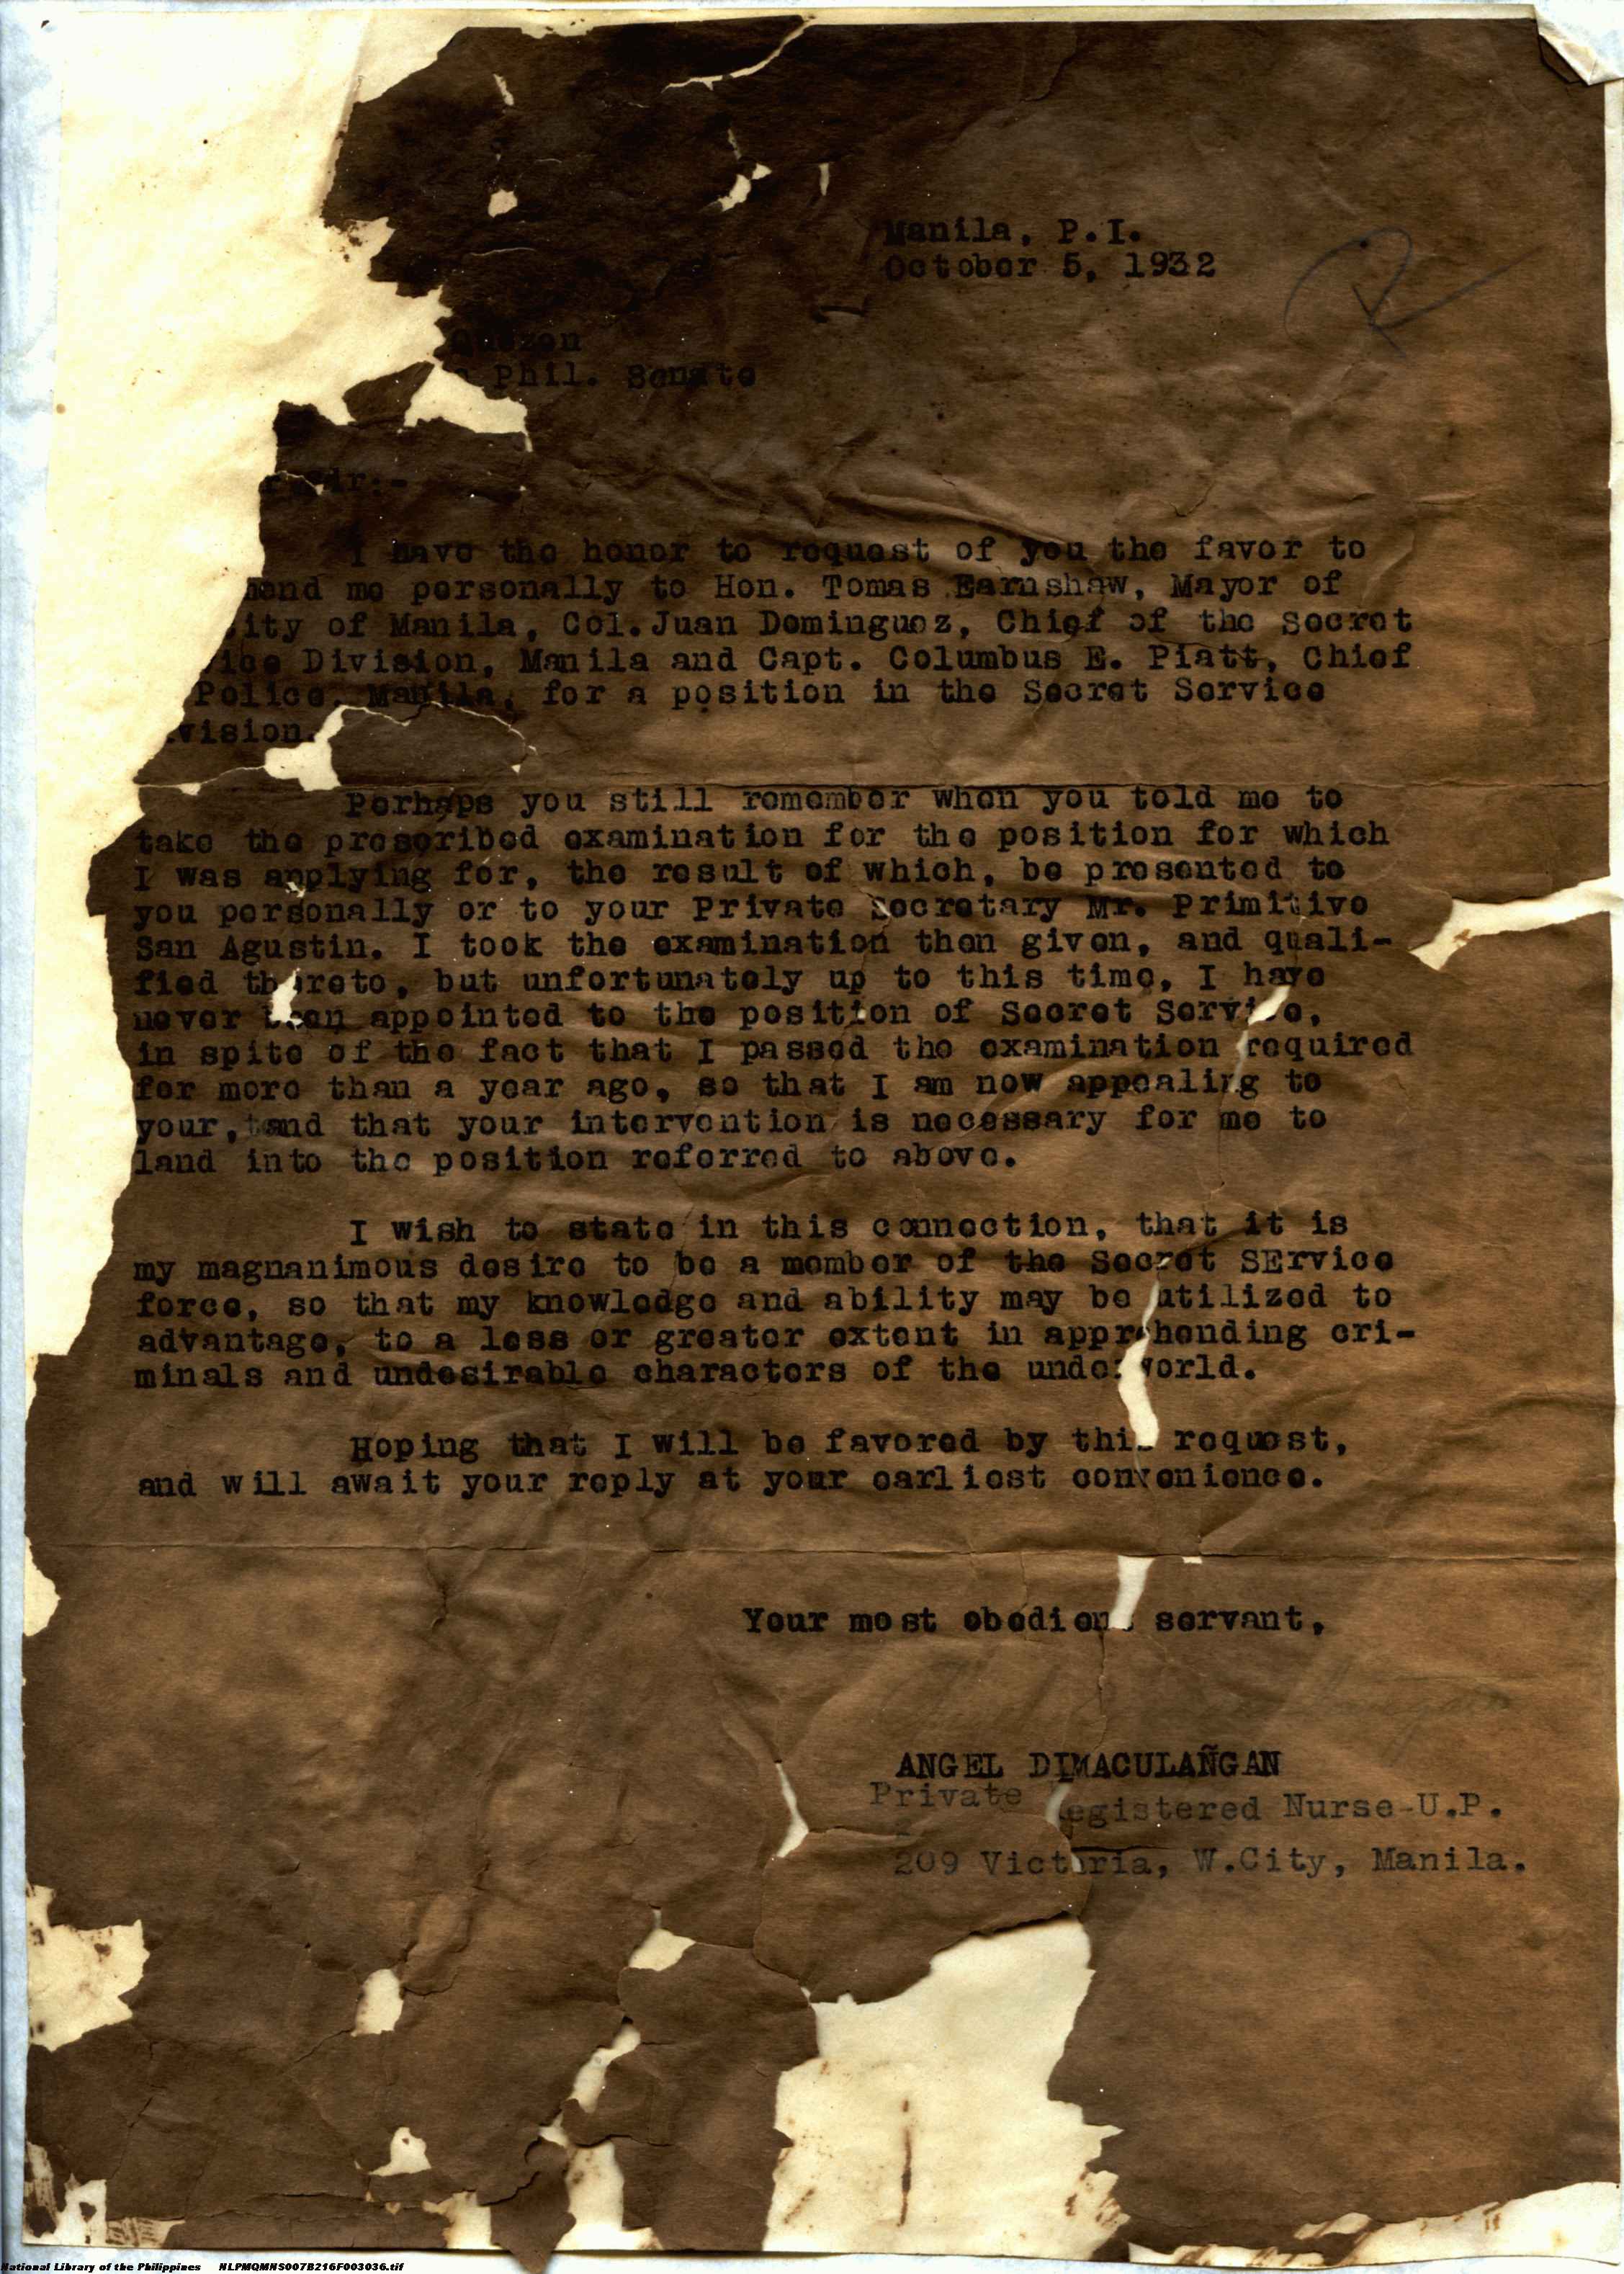 Manila, P.I.
October 5, 1932
Quezon
Phil. Senate
Sir:-
I have the honor to request of you the favor to
mend me personally to Hon. Tomas Earnshaw, Mayor of
City of Manila, Col. Juan Dominguez, Chief of the Secret
vice Division, Manila and Capt. Columbus E. Piatt, Chief
Police, Manila, for a position in the Secret Service
vision.
Perhaps you still remember when you told me to
take the prescribed examination for the position for which
I was applying for, the result of which, be presented to
you personally or to your Private Secretary Mr. Primitivo
San Agustin. I took the examination then given, and quali-
fied thereto, but unfortunately up to this time, I have
never been appointed to the position of Secret Service,
in spite of the fact that I passed the examination required
for more than a year ago, so that I am now appealing to
your, and that your intervention is necessary for me to
land into the position referred to above.
I wish to state in this connection, that it is
my magnanimous desire to be a member of the Secret SErvice
force, so that my knowledge and ability may be utilized to
advantage, to a less or greater extent in apprehending cri-
minals and undesirable characters of the underworld.
Hoping that I will be favored by this request,
and will await your reply at your earliest convenience.
Your most obedient servant,
ANGEL DIMACULAÑGAN
Private Registered Nurse-U.P.
209 Victoria, W.City, Manila.
National Library of the Philippines NLPMQMNS007B216F003036.tif